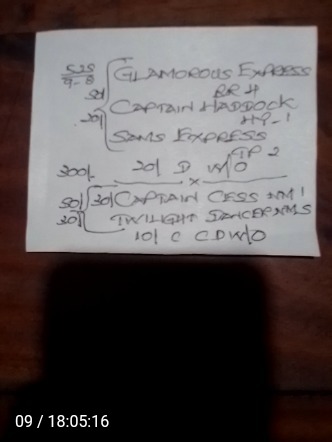 5.25 GLAMOROUS EXPRESS
9-8 BRH
50/ CAPTAIN HADDOCK
20/ HP-1
SAMS EXPRESS
TP 2
300/. 20/ D W/O
x
50/ 30/ CAPTAIN CESS NM 1
30/ TWILIGHT DANCER NMS
10/ C CD W/O
09 / 18:05:16